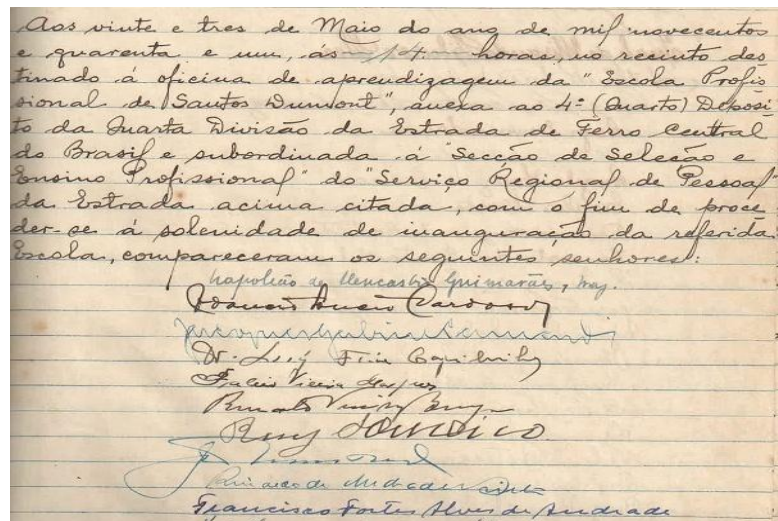 Aos vinte e tres de Maio do ano de mil novecentos
e quarenta e um, ás 14 horas, no recinto des
tinado á oficina de aprendizagem da "Escola Profis
sional de Santos Dumont", anexa ao 4º (Quarto) Deposi
to da Quarta Divisão da Estrada de Ferro Central
do Brasil e subordinada á "Secção de Seleção e
Ensino Profissional" do "Serviço Regional de Pessoal"
da Estrada acima citada, com o fim de proce
der-se á solenidade de inauguração da referida
Escola, compareceram os seguintes senhores:
Napoleão de Alencastro Guimarães,
Dr. Luiz
Vieira Marques
Renato
Ruy
de Andrade
Francisco Fortes Alves de Andrade